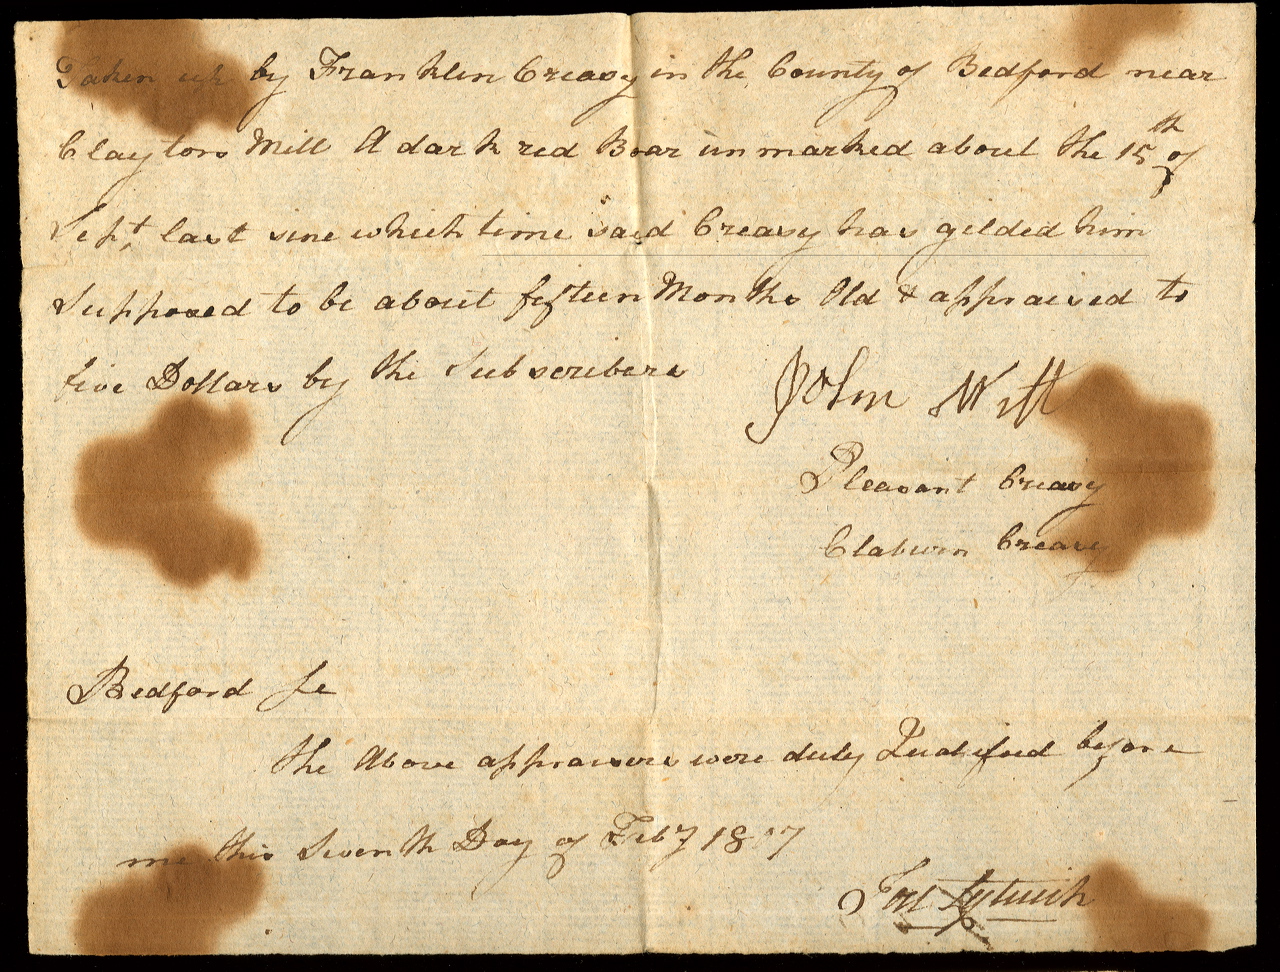 Taken up by Franklin Creasy in the County of Bedford near
Claytors Mill A dark red Boar unmarked about the 15th of
Sept. last sine which time said Creasy has gelded him
Supposed to be about fifteen Months Old & appraised to
five Dollars by the Subscribers
John Witt
Pleasant Creasy
Claburn Creasy
Bedford Sc
The Above appraisers were duly Qualified before
me this Seventh Day of Feby